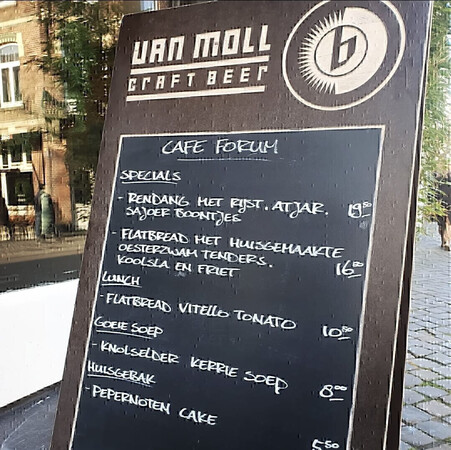 VAN MOLL
CRAFT BEER
b
CAFE FORUM
SPECIALS
- RENDANG MET RIJST. ATJAR. 19,50
SAJOER BOONTJES
- FLATBREAD MET HUISGEMAAKTE
OESTERZWAM TENDERS.
KOOLSLA EN FRIET 16,00
LUNCH
- FLATBREAD VITELLO TOMATO 10,50
GOEIE SOEP
- KNOLSELDER KERRIE SOEP 8,00
HUISGEBAK
- PEPERNOTEN CAKE
5,50